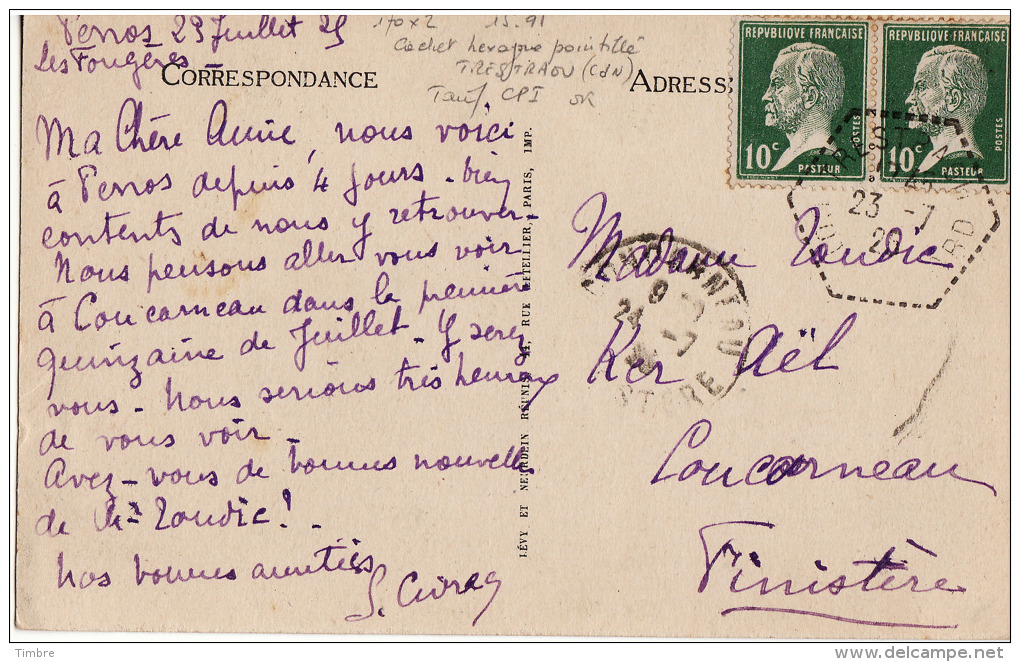 Perros 23 Juillet 25
les Fougères
170 x 2 15.91
Cachet hexagone pointillé
TRESTRAOU (CdN)
Tarif CPI OK
CORRESPONDANCE
ADRESSE
Ma Chère Amie, nous voici
à Perros depuis 4 jours - bien
contents de nous y retrouver -
Nous pensons aller vous voir
à Concarneau dans la première
quinzaine de Juillet. Y serez
vous - Nous serions très heureux
de vous voir -
Avez-vous de bonnes nouvelles
de
Nos bonnes amitiés
LÉVY ET NEURDEIN RÉUNIS, 44, RUE LETELLIER, PARIS, IMP.
REPVBLIQUE FRANÇAISE
POSTES
10c
PASTEUR
REPVBLIQUE FRANÇAISE
POSTES
10c
PASTEUR
TRESTRAOU
23 -7
CONCARNEAU
FINISTERE
Madame
Ker Aël
Concarneau
Finistère
Timbre
www.delcampe.net